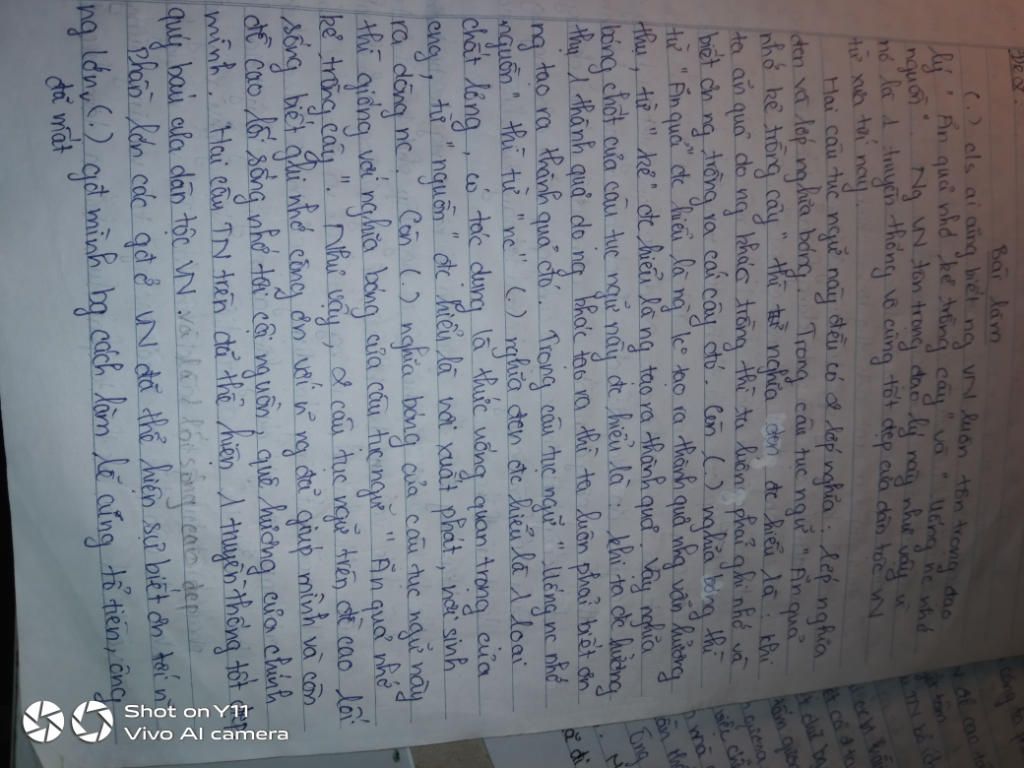 Đề 2.
Bài làm
(.) c/s ai cũng biết ng VN luôn tôn trọng đạo
lý " Ăn quả nhớ kẻ trồng cây " và " Uống nc nhớ
nguồn ". Ng VN tôn trọng đạo lý này như vậy vì
nó là 1 truyền thống vô cùng tốt đẹp của dân tộc VN
từ xưa tới nay.
Hai câu tục ngữ này đều có 2 lớp nghĩa. Lớp nghĩa
đen và lớp nghĩa bóng. Trong câu tục ngữ " Ăn quả
nhớ kẻ trồng cây " thì nghĩa đen đc hiểu là khi
ta ăn quả do ng khác trồng thì ta luôn phải ghi nhớ và
biết ơn ng trồng ra cái cây đó. Còn (.) nghĩa bóng thì
từ " Ăn quả " đc hiểu là ng k tạo ra thành quả nhg vẫn hưởng
thụ, từ " kẻ " đc hiểu là ng tạo ra thành quả. Vậy nghĩa
bóng chốt của câu tục ngữ này đc hiểu là: khi ta đc hưởng
thụ 1 thành quả do ng khác tạo ra thì ta luôn phải biết ơn
ng tạo ra thành quả đó. Trong câu tục ngữ " Uống nc nhớ
nguồn " thì từ " nc " (.) nghĩa đen đc hiểu là 1 loại
chất lỏng, có tác dụng là thức uống quan trọng của
ng, từ " nguồn " đc hiểu là nơi xuất phát, nơi sinh
ra dòng nc. Còn (.) nghĩa bóng của câu tục ngữ này
thì giống với nghĩa bóng của câu tục ngữ " Ăn quả nhớ
kẻ trồng cây ". Như vậy, 2 câu tục ngữ trên đề cao lối
sống biết ghi nhớ công ơn với n~ ng đã giúp mình và còn
đề cao lối sống nhớ tới cội nguồn, quê hương của chính
mình. Hai câu TN trên đã thể hiện 1 truyền thống tốt đẹp
quý báu của dân tộc VN.
Phần lớn các gđ ở VN đã thể hiện sự biết ơn tới n~
ng lớn (.) gđ mình bg cách làm lễ cúng tổ tiên, ông
đã mất